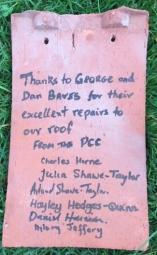 Thanks to GEORGE and
Dan BAVES for their
excellent repairs to
our roof
FROM THE PCC
Charles Horne
Julia Shawe-Taylor
Shawe-Taylor
Hayley Hodges-
Daniel
Hilary Jaffery